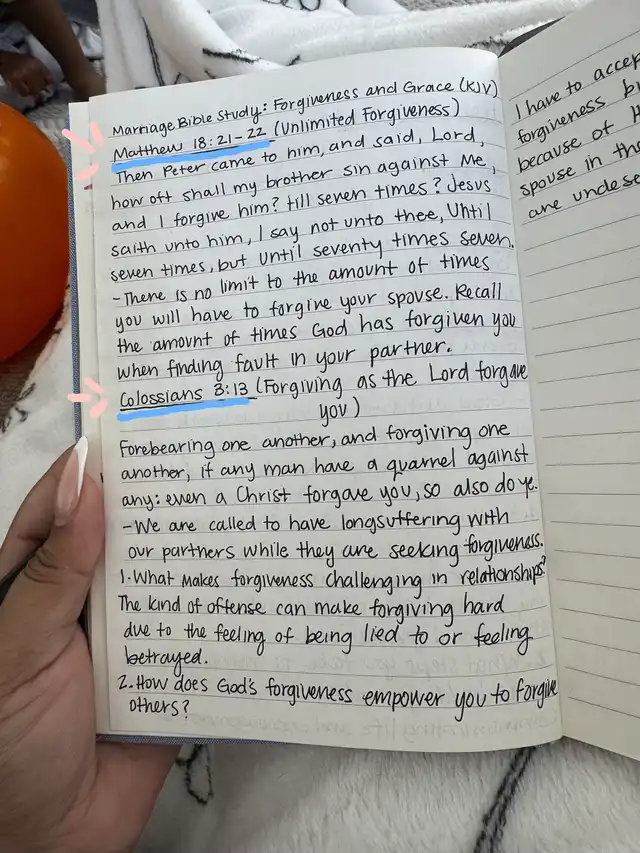 Marriage Bible Study: Forgiveness and Grace (KJV)
Matthew 18:21-22 (Unlimited Forgiveness)
Then Peter came to him, and said, Lord,
how oft shall my brother sin against me,
and I forgive him? till seven times? Jesus
saith unto him, I say not unto thee, Until
seven times, but until seventy times seven.
-There is no limit to the amount of times
you will have to forgive your spouse. Recall
the amount of times God has forgiven you
when finding fault in your partner.
Colossians 3:13 (Forgiving as the Lord forgave
you)
Forebearing one another, and forgiving one
another, if any man have a quarrel against
any: even a Christ forgave you, so also do ye.
-We are called to have longsuffering with
our partners while they are seeking forgiveness.
1. What makes forgiveness challenging in relationships?
The kind of offense can make forgiving hard
due to the feeling of being lied to or feeling
betrayed.
2. How does God's forgiveness empower you to forgive
others?
I have to accep
forgiveness
because of
spouse in the
are undese